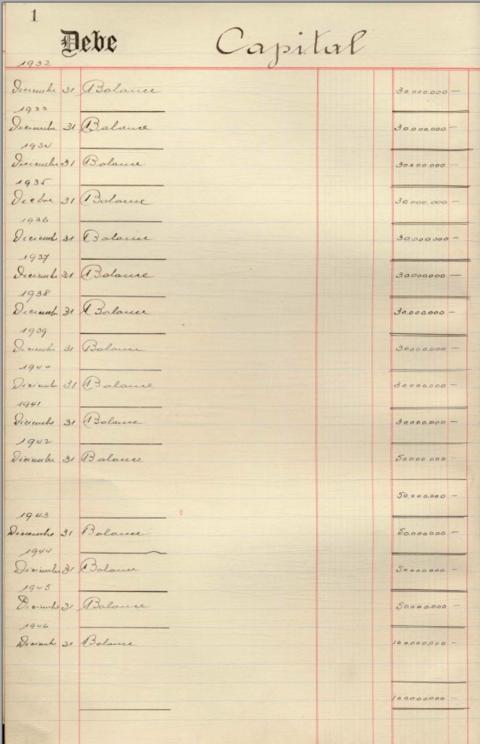 1
Debe Capital
1932
Diciembre 31 Balance 30.000.000 —
1933
Diciembre 31 Balance 30.000.000 —
1934
Diciembre 31 Balance 30.000.000 —
1935
Dicbre 31 Balance 30.000.000 —
1936
Diciembre 31 Balance 30.000.000 —
1937
Diciembre 31 Balance 30.000.000 —
1938
Diciembre 31 Balance 30.000.000 —
1939
Diciembre 31 Balance 30.000.000 —
1940
Diciembre 31 Balance 30.000.000 —
1941
Diciembre 31 Balance 30.000.000 —
1942
Diciembre 31 Balance 50.000.000 —
50.000.000 —
1943
Diciembre 31 Balance 50.000.000 —
1944
Diciembre 31 Balance 50.000.000 —
1945
Diciembre 31 Balance 50.000.000 —
1946
Diciembre 31 Balance 100.000.000 —
100.000.000 —